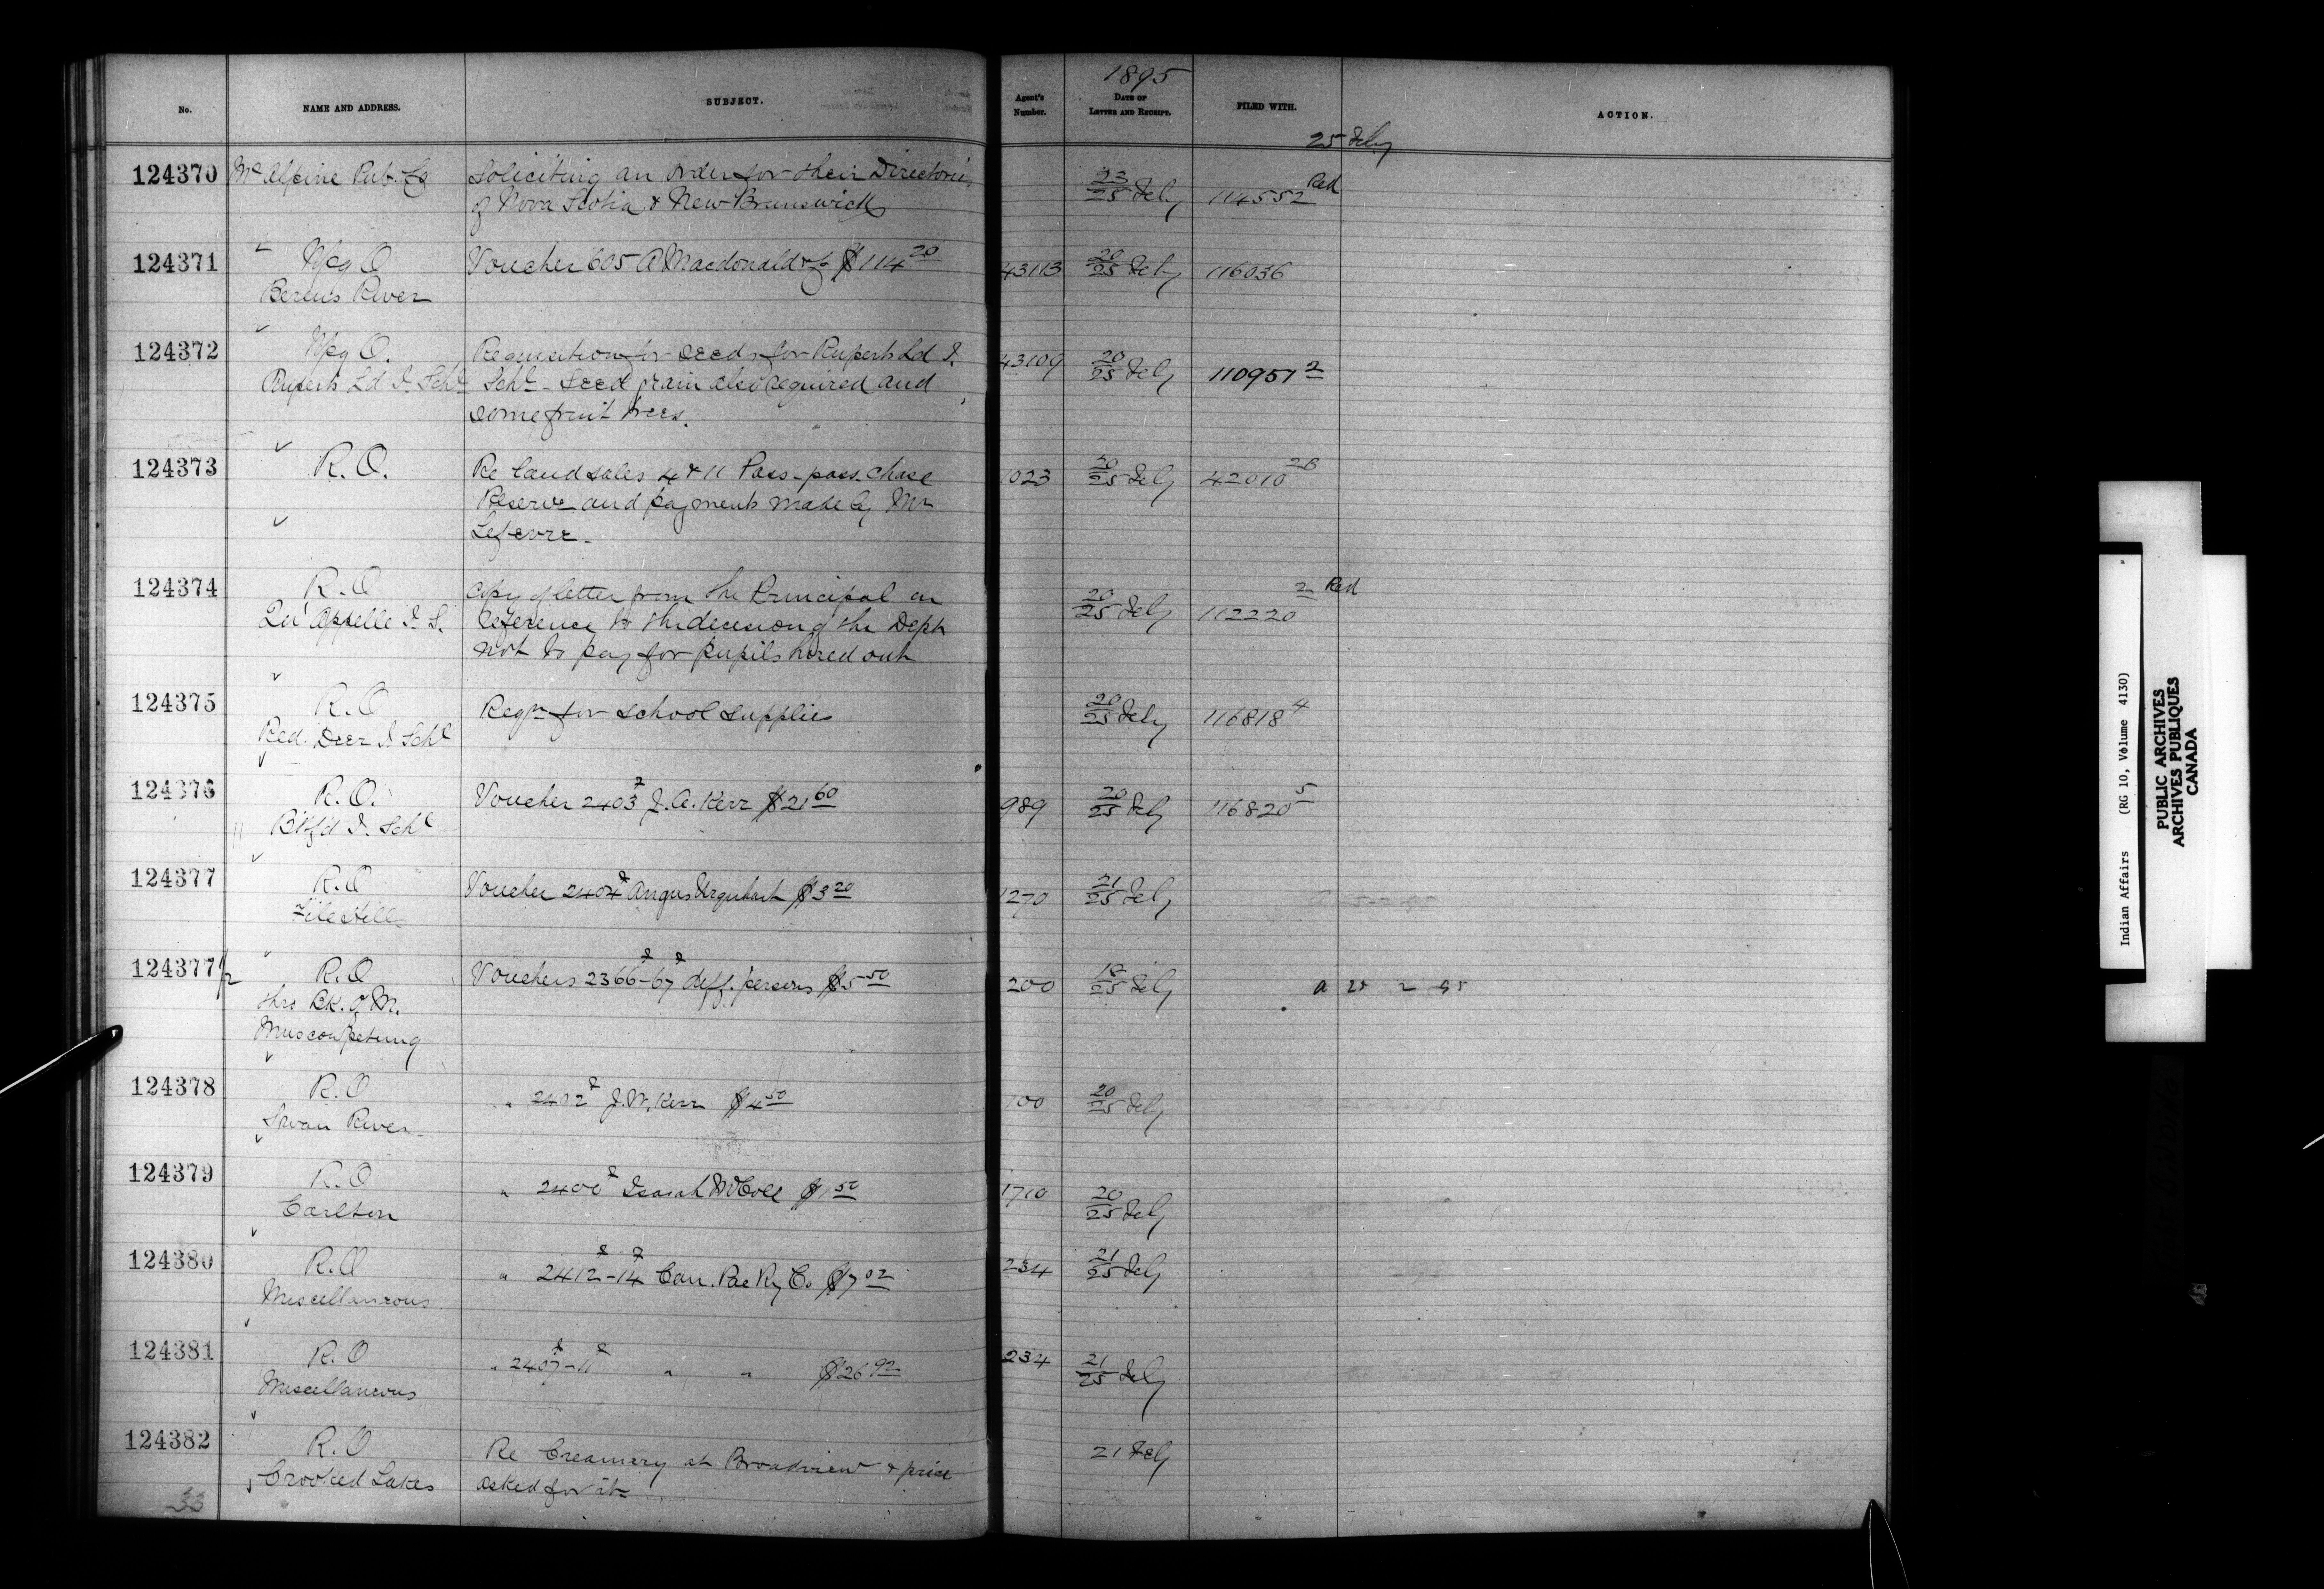 1895
No.
NAME AND ADDRESS.
SUBJECT.
Agent's Number.
DATE OF LETTER AND RECEIPT.
FILED WITH.
ACTION.
25 Feby
124370 McAlpine Pub. Co Soliciting an order for their Directories 23/25 Feby 114552 Red
of Nova Scotia & New Brunswick
124371 Wpg O Voucher 605 A Macdonald & Co $114 20 43113 20/25 Feby 116036
Berens River
124372 Wpg O. Requisition for seeds for Ruperts Ld I. 43109 20/25 Feby 110951 2
Ruperts Ld I. Schl Schl - Seed grain also required and
some fruit trees.
124373 R.O. Re land sales 4 & 11 Pass-pass-chase 1023 20/25 Feby 42010 2B
Reserve and payments made by Mr
Lefevre.
124374 R.O Copy of letter from the Principal in 20/25 Feby 112220 2 Red
Qu'Appelle I. S. reference to the decision of the Dept
not to pay for pupils hired out
124375 R.O Reqn for school supplies 20/25 Feby 116818 4
Red. Deer I Schl
124376 R.O. Voucher 2403 2 J.A. Kerr $21 60 989 20/25 Feby 116820 5
B'tlfd I. Schl
124377 R.O Voucher 2404 Angus Urquhart $3 20 1270 21/25 Feby
File Hills
124377 1/2 R.O Vouchers 2366-67 diff. persons $5 50 200 18/25 Feby a 25 2 95
thro Bk. of M.
Muscowpetung
124378 R.O " 2402 J.W. Kerr $4 50 100 20/25 Feby
Swan River
124379 R.O " 2400 Isaiah McColl $1 50 1710 20/25 Feby
Carlton
124380 R.O " 2412-14 Can. Pac Ry Co $7 02 234 21/25 Feby
Miscellaneous
124381 R.O " 2407-11 " " $26 92 234 21/25 Feby
Miscellaneous
124382 R.O Re Creamery at Broadview & price 21 Feby
Crooked Lakes asked for it
33
Indian Affairs (RG 10, Volume 4130)
PUBLIC ARCHIVES
ARCHIVES PUBLIQUES
CANADA